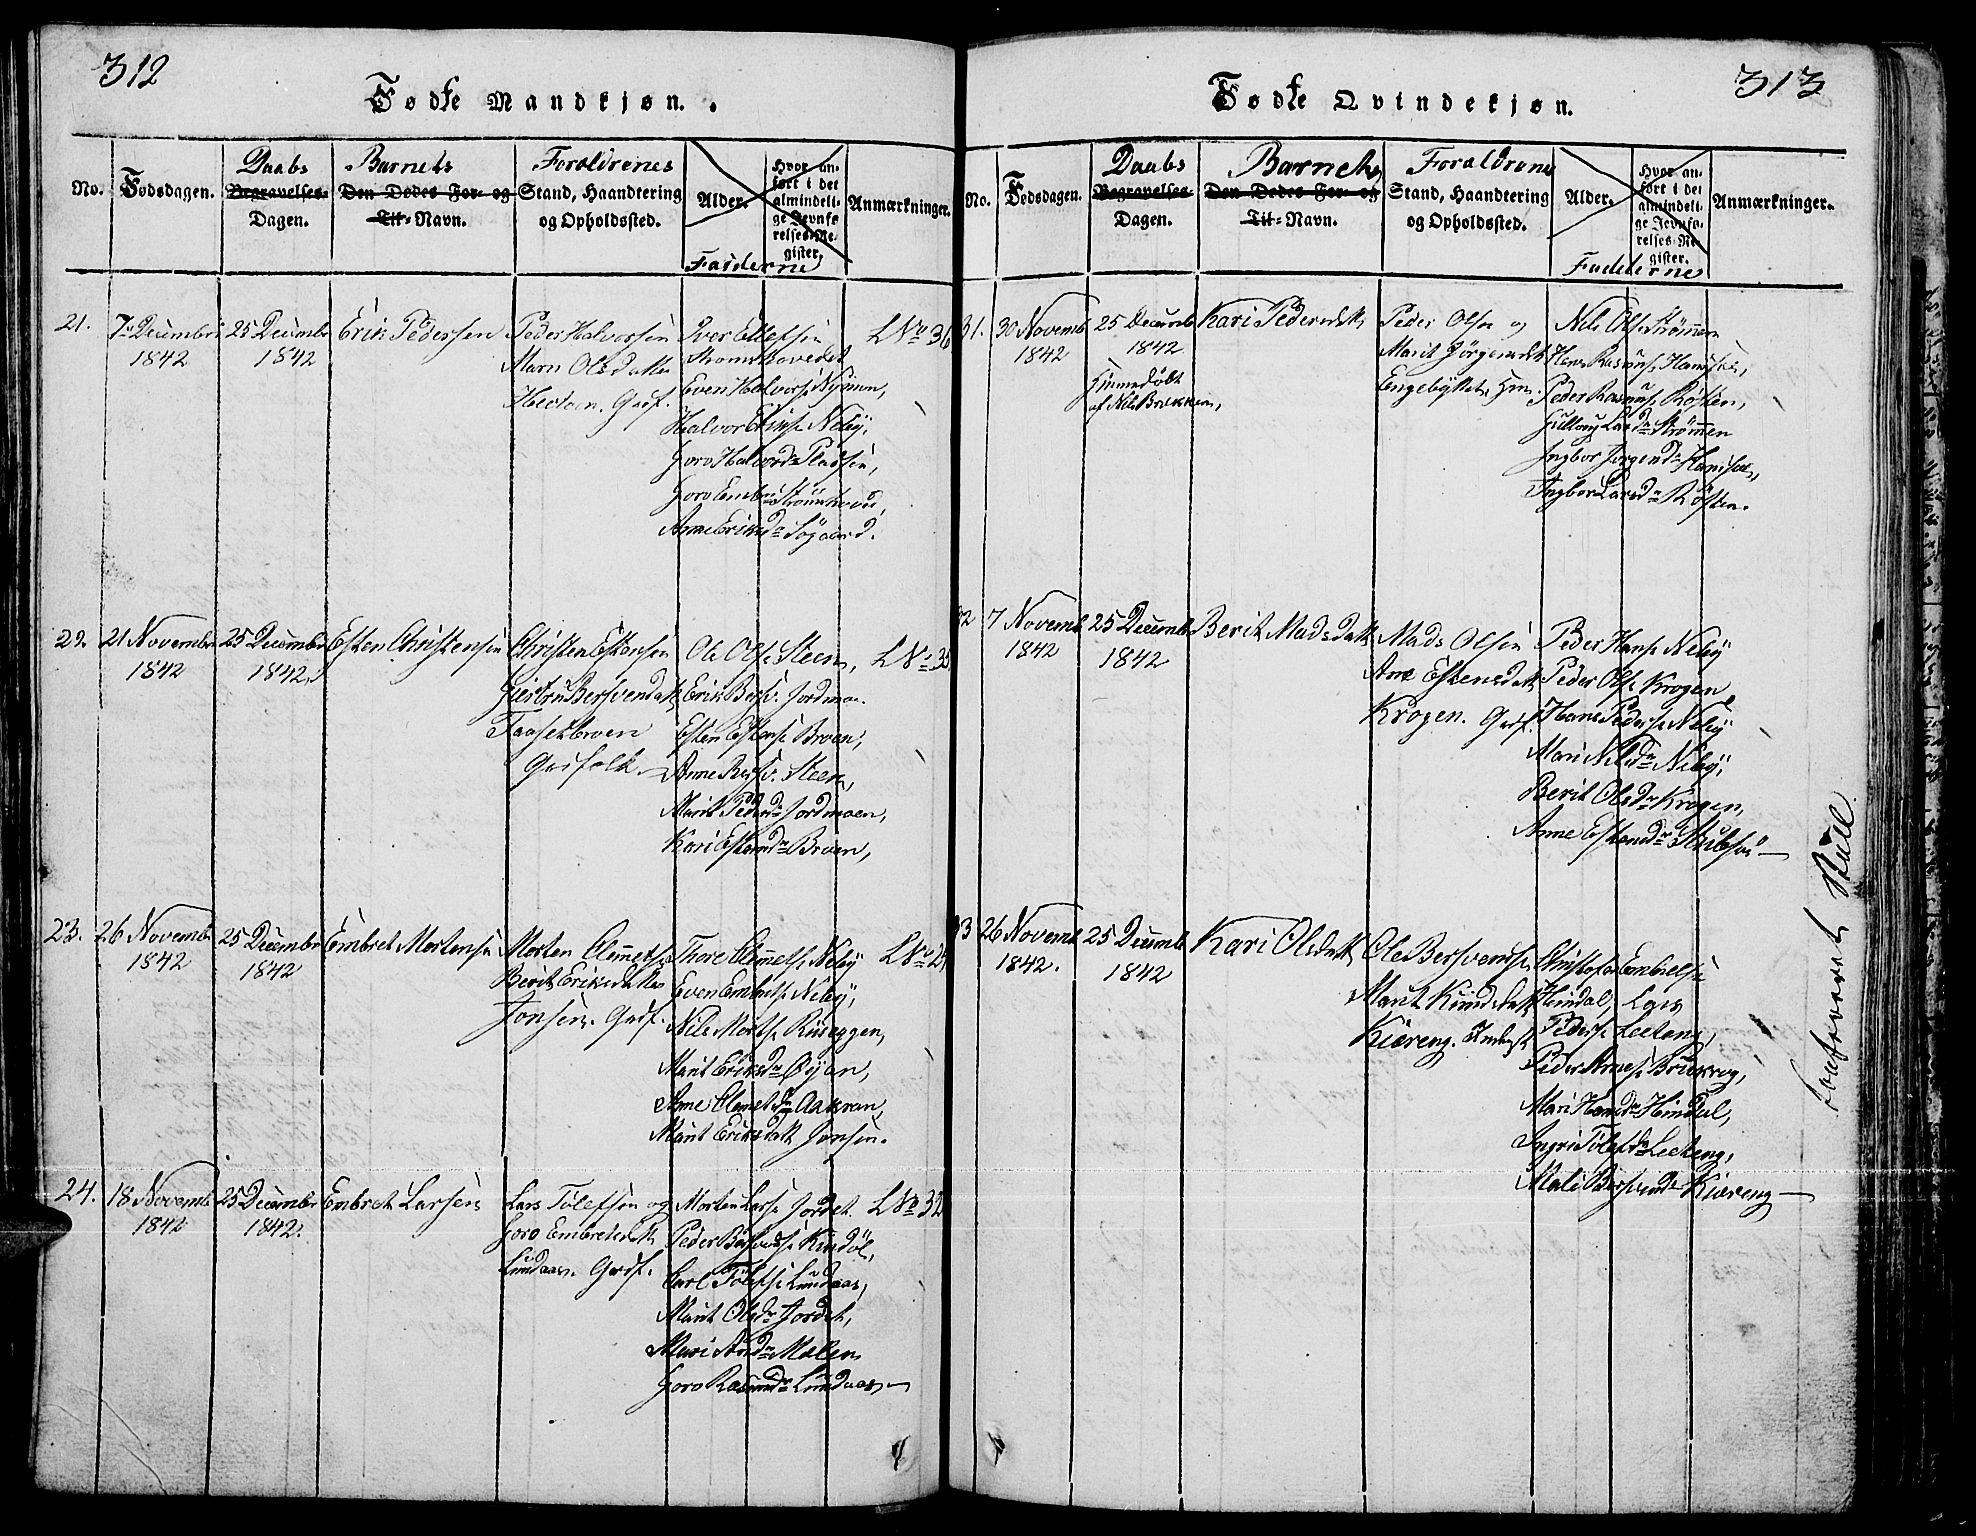 312
Fødte Mandkjøn.
No.
Fødsdagen.
Daabs
Begravelses-
Dagen.
Barnets
Den Dødes For- og
Til-Navn.
Forældrenes
Stand, Haandtering
og Opholdssted.
Alder.
Hvor an-
ført i det
almindeli-
ge Jevnfø-
relses-Re-
gister.
Fadderne
Anmærkninger.
21.
7de Decembr
1842
25 Decembr
1842
Erik Pedersen
Peder Halvorsen
Marn Olsdatter
Grdf.
Iver Ellefsen
Strømshovedet
Even Halvors.
Halvor Eriks. Neby,
Goro Halvord. Pladsen,
Goro Strømshoved,
Anne Eriksd. Søgaard.
LNo 36
22.
21 Novembr
1842
25 Decembr
1842
Esten Christensen
Christen Estensen
Bersvendatt
Gaufolk
Ole Ols. Steen,
Erik Bersv. Jordmoe.
Esten Estens. Broen,
Anne Bersv. Steen,
Marit Pedersd. Jordmoen,
Kari Estensd. Broen,
23.
26 Novemb
1842
25 Decembr
1842
Embret Mortensen
Morten Clemets.
Berit Eriksdatter
Jonsen. Grdf.
Thore Clemets. Neby
Even Embrets. Neby,
Nils Morts. Rüseggen,
Marit Eriksd. Øyan,
Anne Clemetsd. Aakran,
Marit Eriksdatt Jonsen.
24.
18 Novemb
1842
25 Decembr
1842.
Embret Larsen
Lars Tolefsen og
Goro Embretsdtt
Lundaas. Grdf.
Morten Lars. Jordet.
Peder Bersvends. Kindöl,
Carl Tolefs. Lundaas,
Marit Olsd. Jordet,
Mari And. Moleen
Goro Rasmusd. Lundaas
LNo 32
313
Fødte Qvindekjøn.
No.
Fødsdagen.
Daabs
Begravelses-
Dagen.
Barnets
Den Dødes For- og
Til-Navn.
Forældrene
Stand, Haandtering
og Opholdssted.
Alder.
Hvor an-
ført i det
almindeli-
ge Jevnfø-
relses-Re-
gister.
Fadderne
Anmærkninger.
31.
30 Novemb
1842
25 Decemb
1842
Hjemmedöbt
af Nils Brekken,
Kari Pedersdtt
Peder Olsen og
Marit Jörgensdtt
Nils Ols. Strömmen
Hans Rasmus.
Peder Rasmus. Rösten,
Gullaug Larsd. Strömmen
Ingbor Jörgend.
Ingbor Larsd. Rösten.
32
7 Novemb
1842
25 Decemb
1842
Berit Madsdatt
Mads Olsen
Ane Estensdatt
Krogen. Grdf.
Peder Hans. Neby
Peder Ols. Krogen
Hans Peders. Neby
Mari Nilsd. Neby,
Berit Olsd. Krogen,
Anne Estensd.
33
26 Novemb
1842.
25 Decemb
1842
Kari Olsdatt
Ole Bersvends.
Marit Knudsdatt
Kiæreng. Indst
Christofer Embrets.
Hindal, Lars
Peders. Leeteng,
Peder Arnes. Brückrog,
Mari Hansd. Hindal,
Ingri Tolefsd. Leeteng,
Mali Bersvendsd. Kiæreng